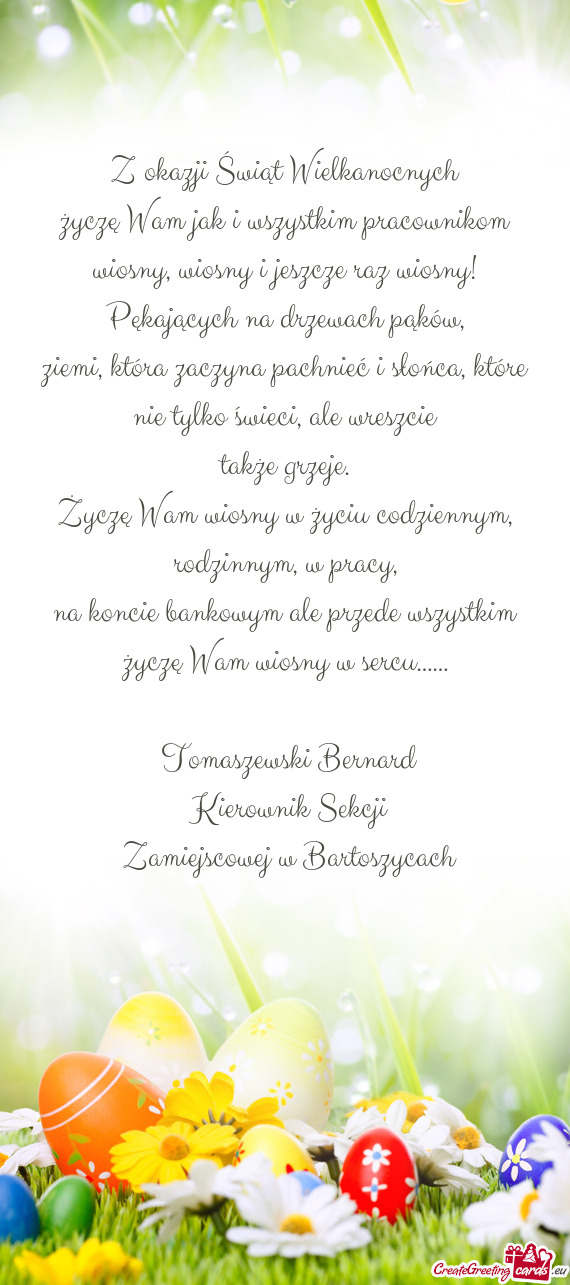 Z okazji Świąt Wielkanocnych
życzę Wam jak i wszystkim pracownikom
wiosny, wiosny i jeszcze raz wiosny!
Pękających na drzewach pąków,
ziemi, która zaczyna pachnieć i słońca, które
nie tylko świeci, ale wreszcie
także grzeje.
Życzę Wam wiosny w życiu codziennym,
rodzinnym, w pracy,
na koncie bankowym ale przede wszystkim
życzę Wam wiosny w sercu......
Tomaszewski Bernard
Kierownik Sekcji
Zamiejscowej w Bartoszycach
CreateGreeting cards .eu